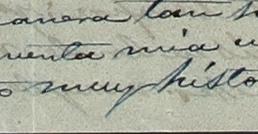 anera tan
uenta mia
muy histo